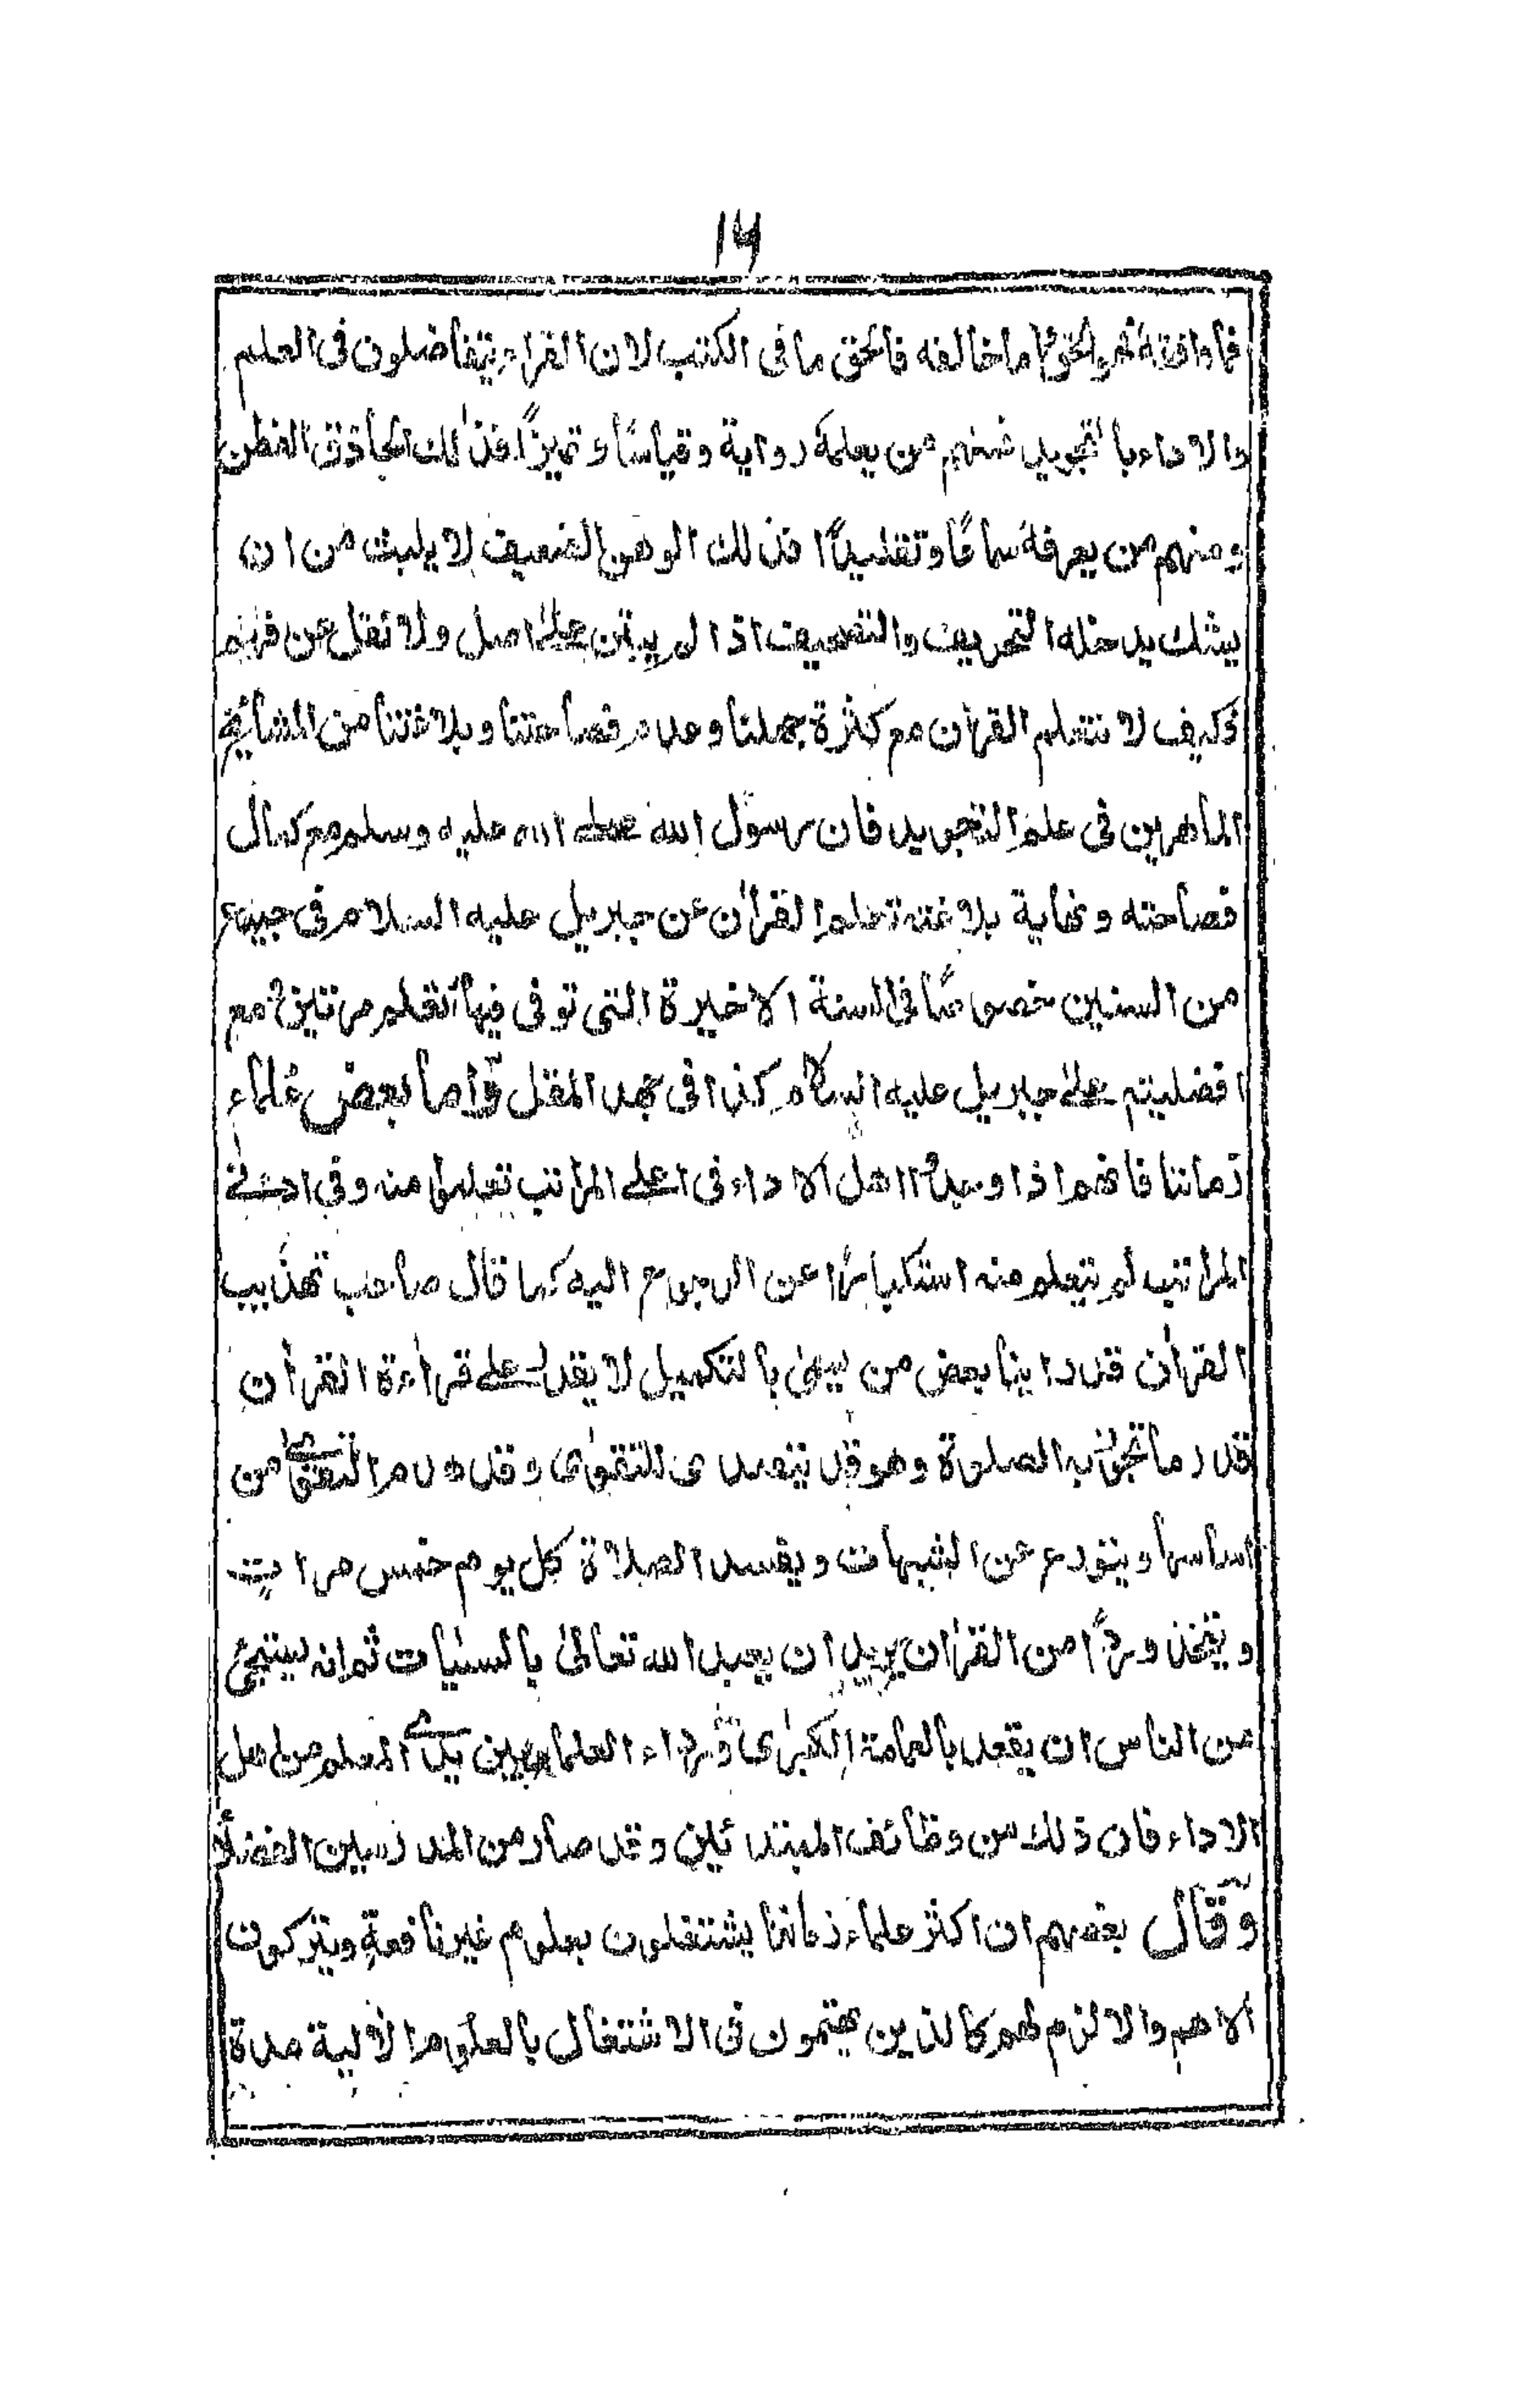 ١٦
فما وافقه فهو الحق وما خالفه فالحق ما فى الكتب لان القراء يتفاضلون فى العلم
والاداء بالتجويد فمنهم من يعلمه رواية وقياسًا وتميزًا فذلك الحاذق الفطن
ومنهم من يعرفه سماعًا وتقليدًا فذلك الوهن الضعيف لا يلبث من ان
يشك يدخله التحريف والتصحيف اذا لم يبتن على اصل ولا نقل عن فهم
فكيف لا نتعلم القرآن مع كثرة جهلنا وعدم فصاحتنا وبلاغتنا من المشائخ
الماهرين فى علم التجويد فان رسول الله صلى الله عليه وسلم مع كمال
فصاحته ونهاية بلاغته تعلم القرآن عن جبريل عليه السلام فى جميع
من السنين خصوصًا فى السنة الاخيرة التى توفى فيها تعلم مرتين مع
افضليته على جبريل عليه السلام كذا فى جهد المقل واما بعض علماء
زماننا فانهم اذا وجدوا اهل الاداء فى اعلى المراتب تعلموا منه وفى ادنى
المراتب لم يتعلم منه استكبارًا عن الرجوع اليه كما قال صاحب تهذيب
القرآن قد راينا بعض من يسمى بالتكميل لا يقدر على قراءة القرآن
قدر ما تجوز به الصلوة وهو قد يتصدى للتقوى وقد هدم التقوى من
اساسها ويتورع عن الشبهات ويفسد الصلاة كل يوم خمس مرات
ويتخذ وردًا من القرآن يريد ان يعبد الله تعالى بالسيات ثم انه يستحيى
من الناس ان يقعد بالعمامة الكبرى ورداء العلماء بين يدى المعلم من اهل
الاداء فان ذلك من وظائف المبتدئين وقد صار من المدرسين الفضلاء
وقال بعضهم ان اكثر علماء زماننا يشتغلون بعلوم غير نافعة ويتركون
الاهم والالزم لهم كالذين يهتمون فى الاشتغال بالعلوم الآلية مدة